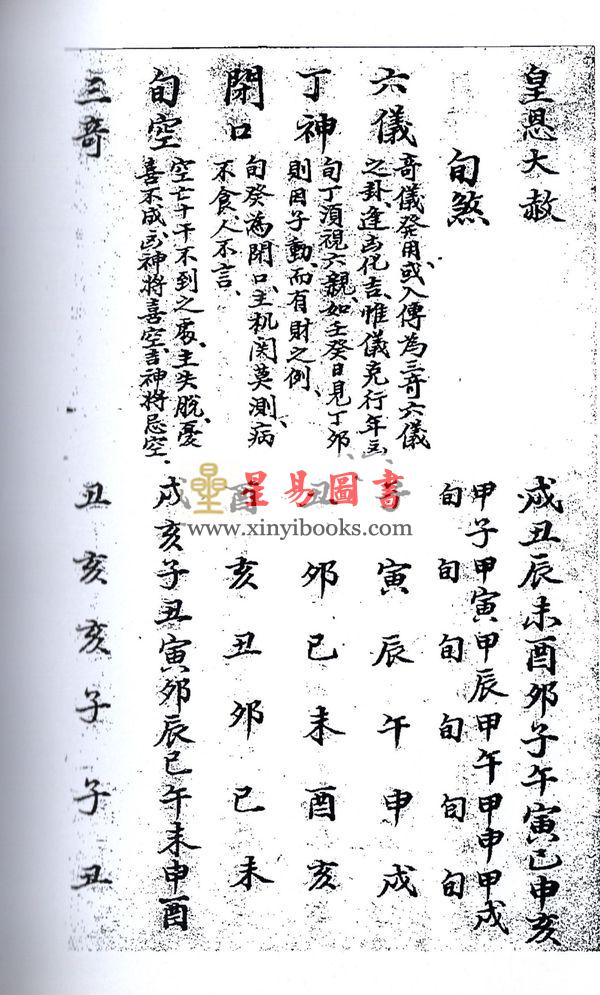 皇恩大赦
戌丑辰未酉卯子午寅巳申亥
旬煞
甲子甲寅甲辰甲午甲申甲戌
旬旬旬旬旬旬
六儀
奇儀發用、或入傳為三奇六儀
之卦、逢凶化吉、惟儀克行年凶
寅辰午申戌
丁神
旬丁須視六親、如壬癸日見丁卯
則因子動、而有財之例、
卯巳未酉亥
閉口
旬癸為閉口、主机関莫測、病
不食人不言、
亥丑卯巳未
旬空
空亡十干不到之處、主失脫、憂
喜不成、凶神將喜空、吉神將忌空.
戌亥子丑寅卯辰巳午未申酉
三奇
丑亥亥子子丑
星易圖書
www.xinyibooks.com